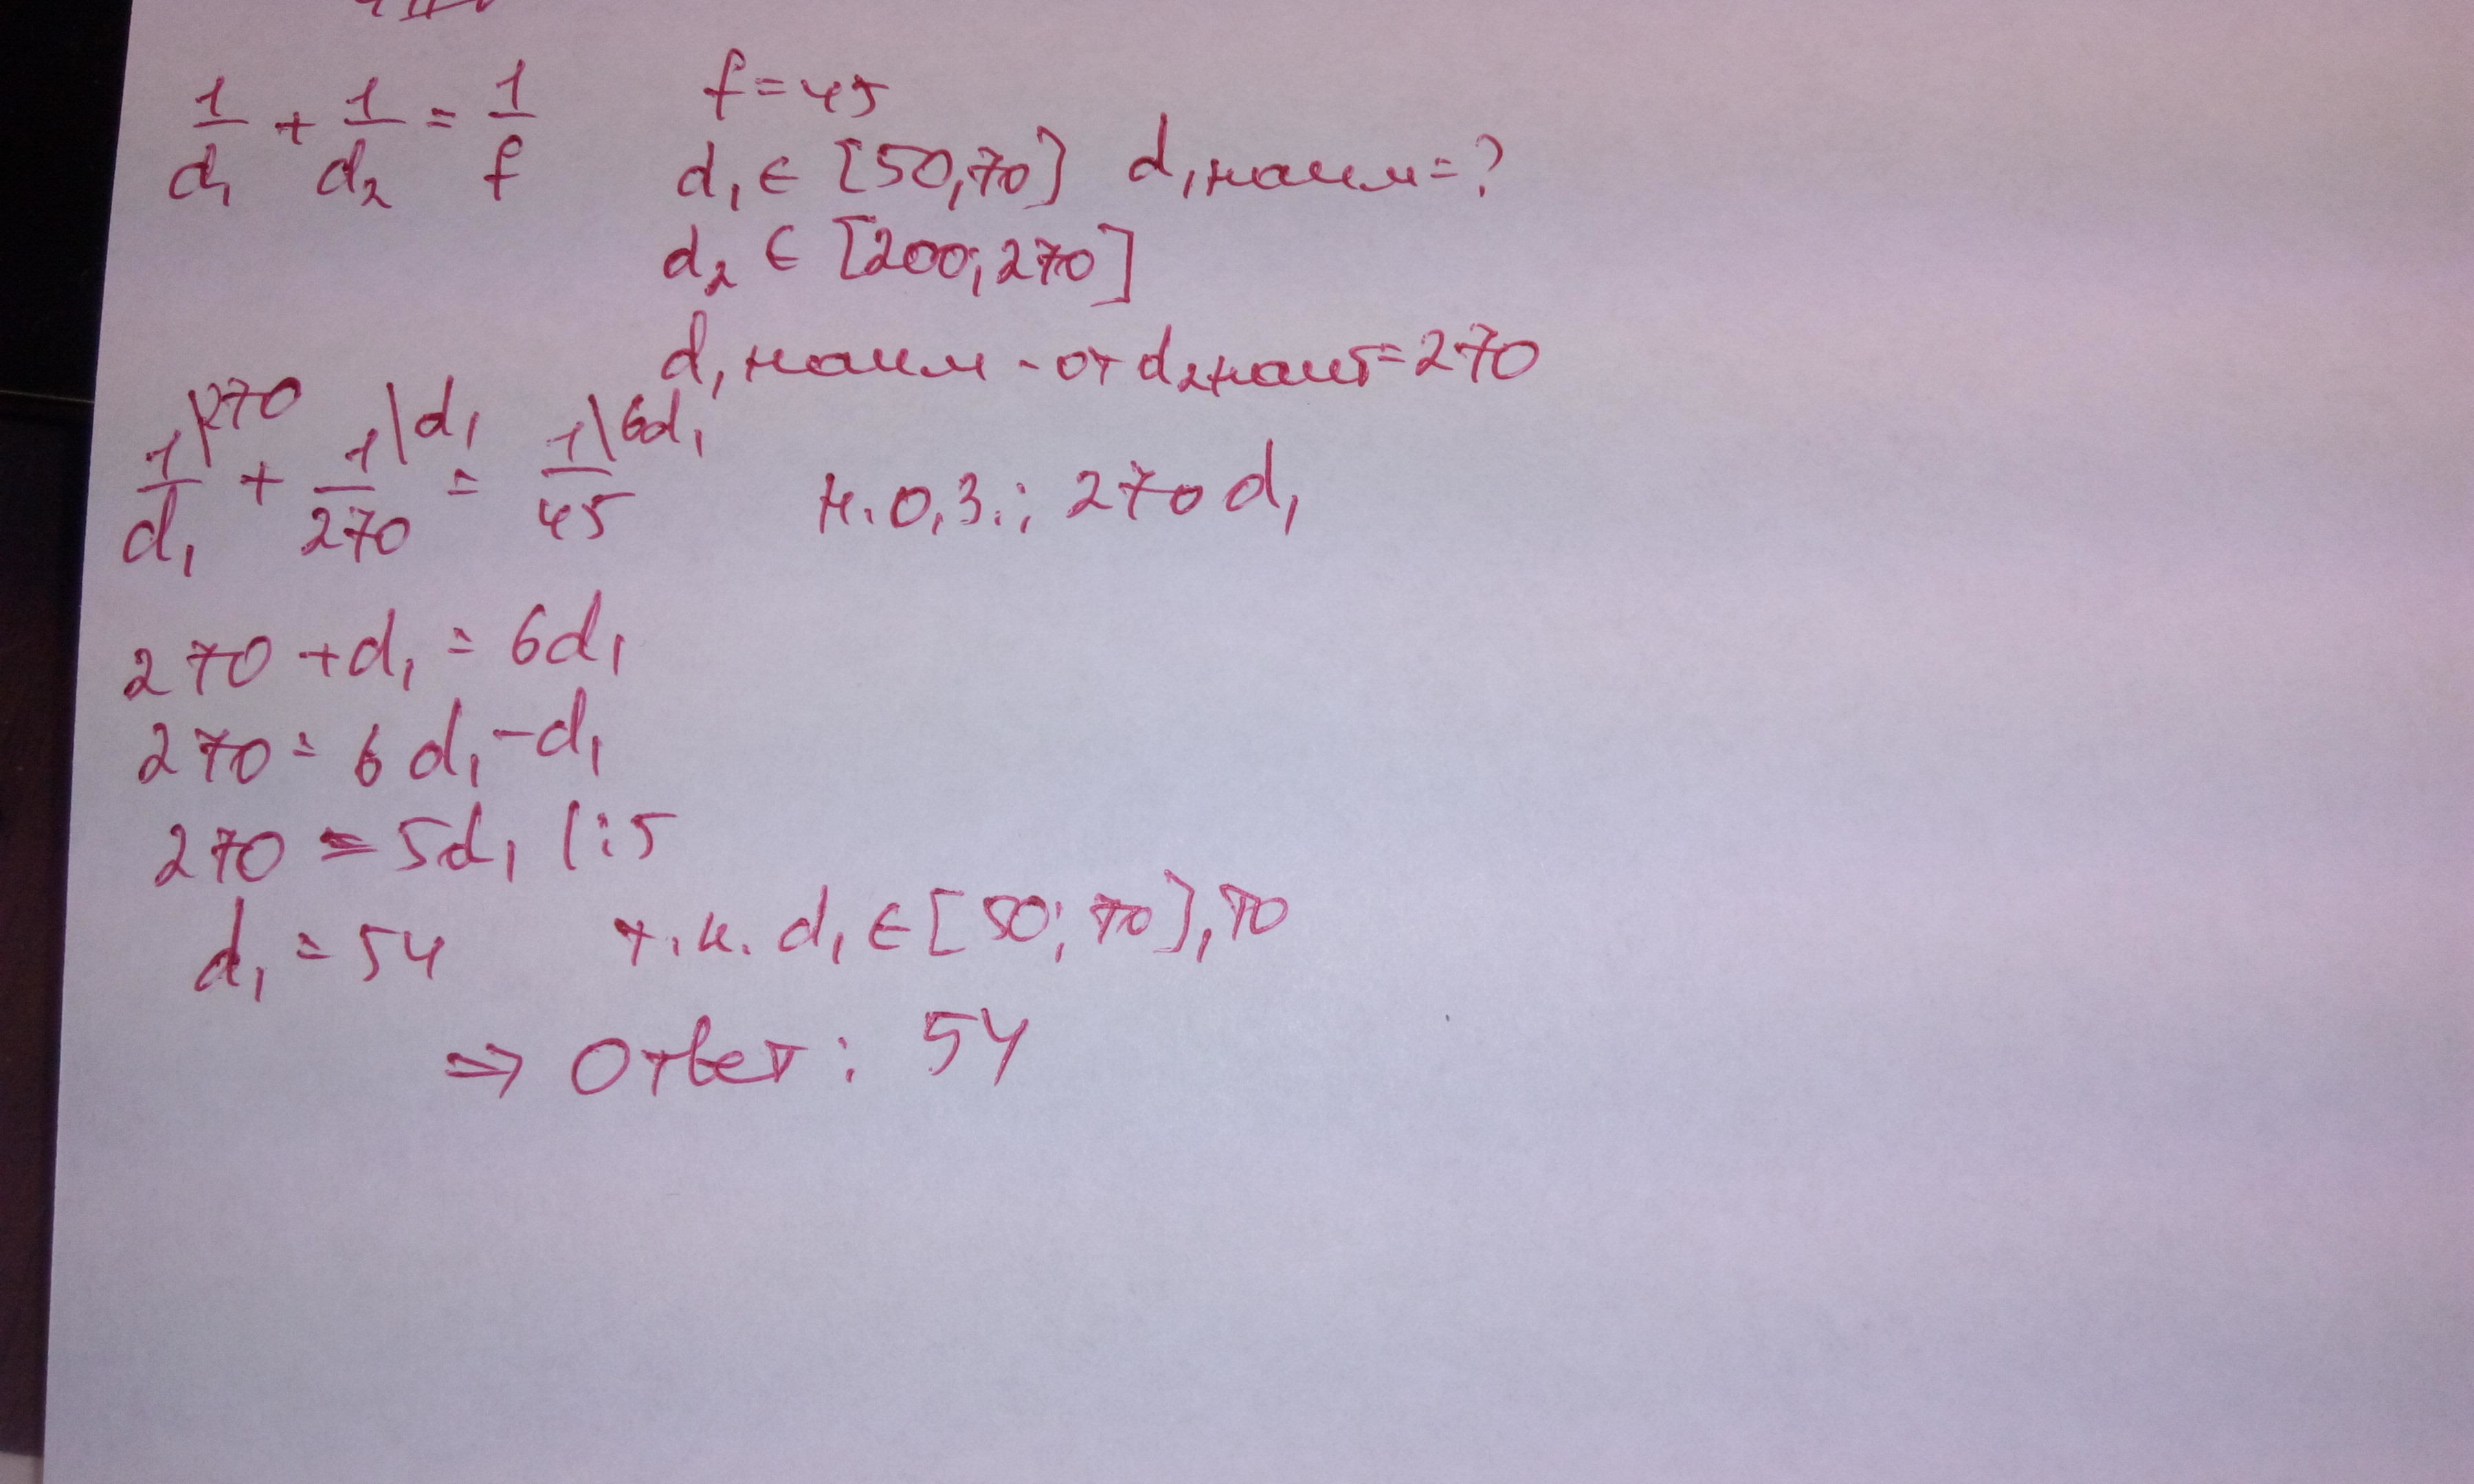 1/d₁ + 1/d₂ = 1/f
f = 45
d₁ ∈ [50,70] d₁ наим = ?
d₂ ∈ [200; 270]
d₁ наим - от d₂ наиб = 270
1\270/d₁ + 1\d₁/270 = 1\6d₁/45
н.о.з.: 270 d₁
270 + d₁ = 6d₁
270 = 6 d₁ - d₁
270 = 5d₁ |:5
d₁ = 54 т.к. d₁ ∈ [50; 70], то
⇒ Ответ: 54